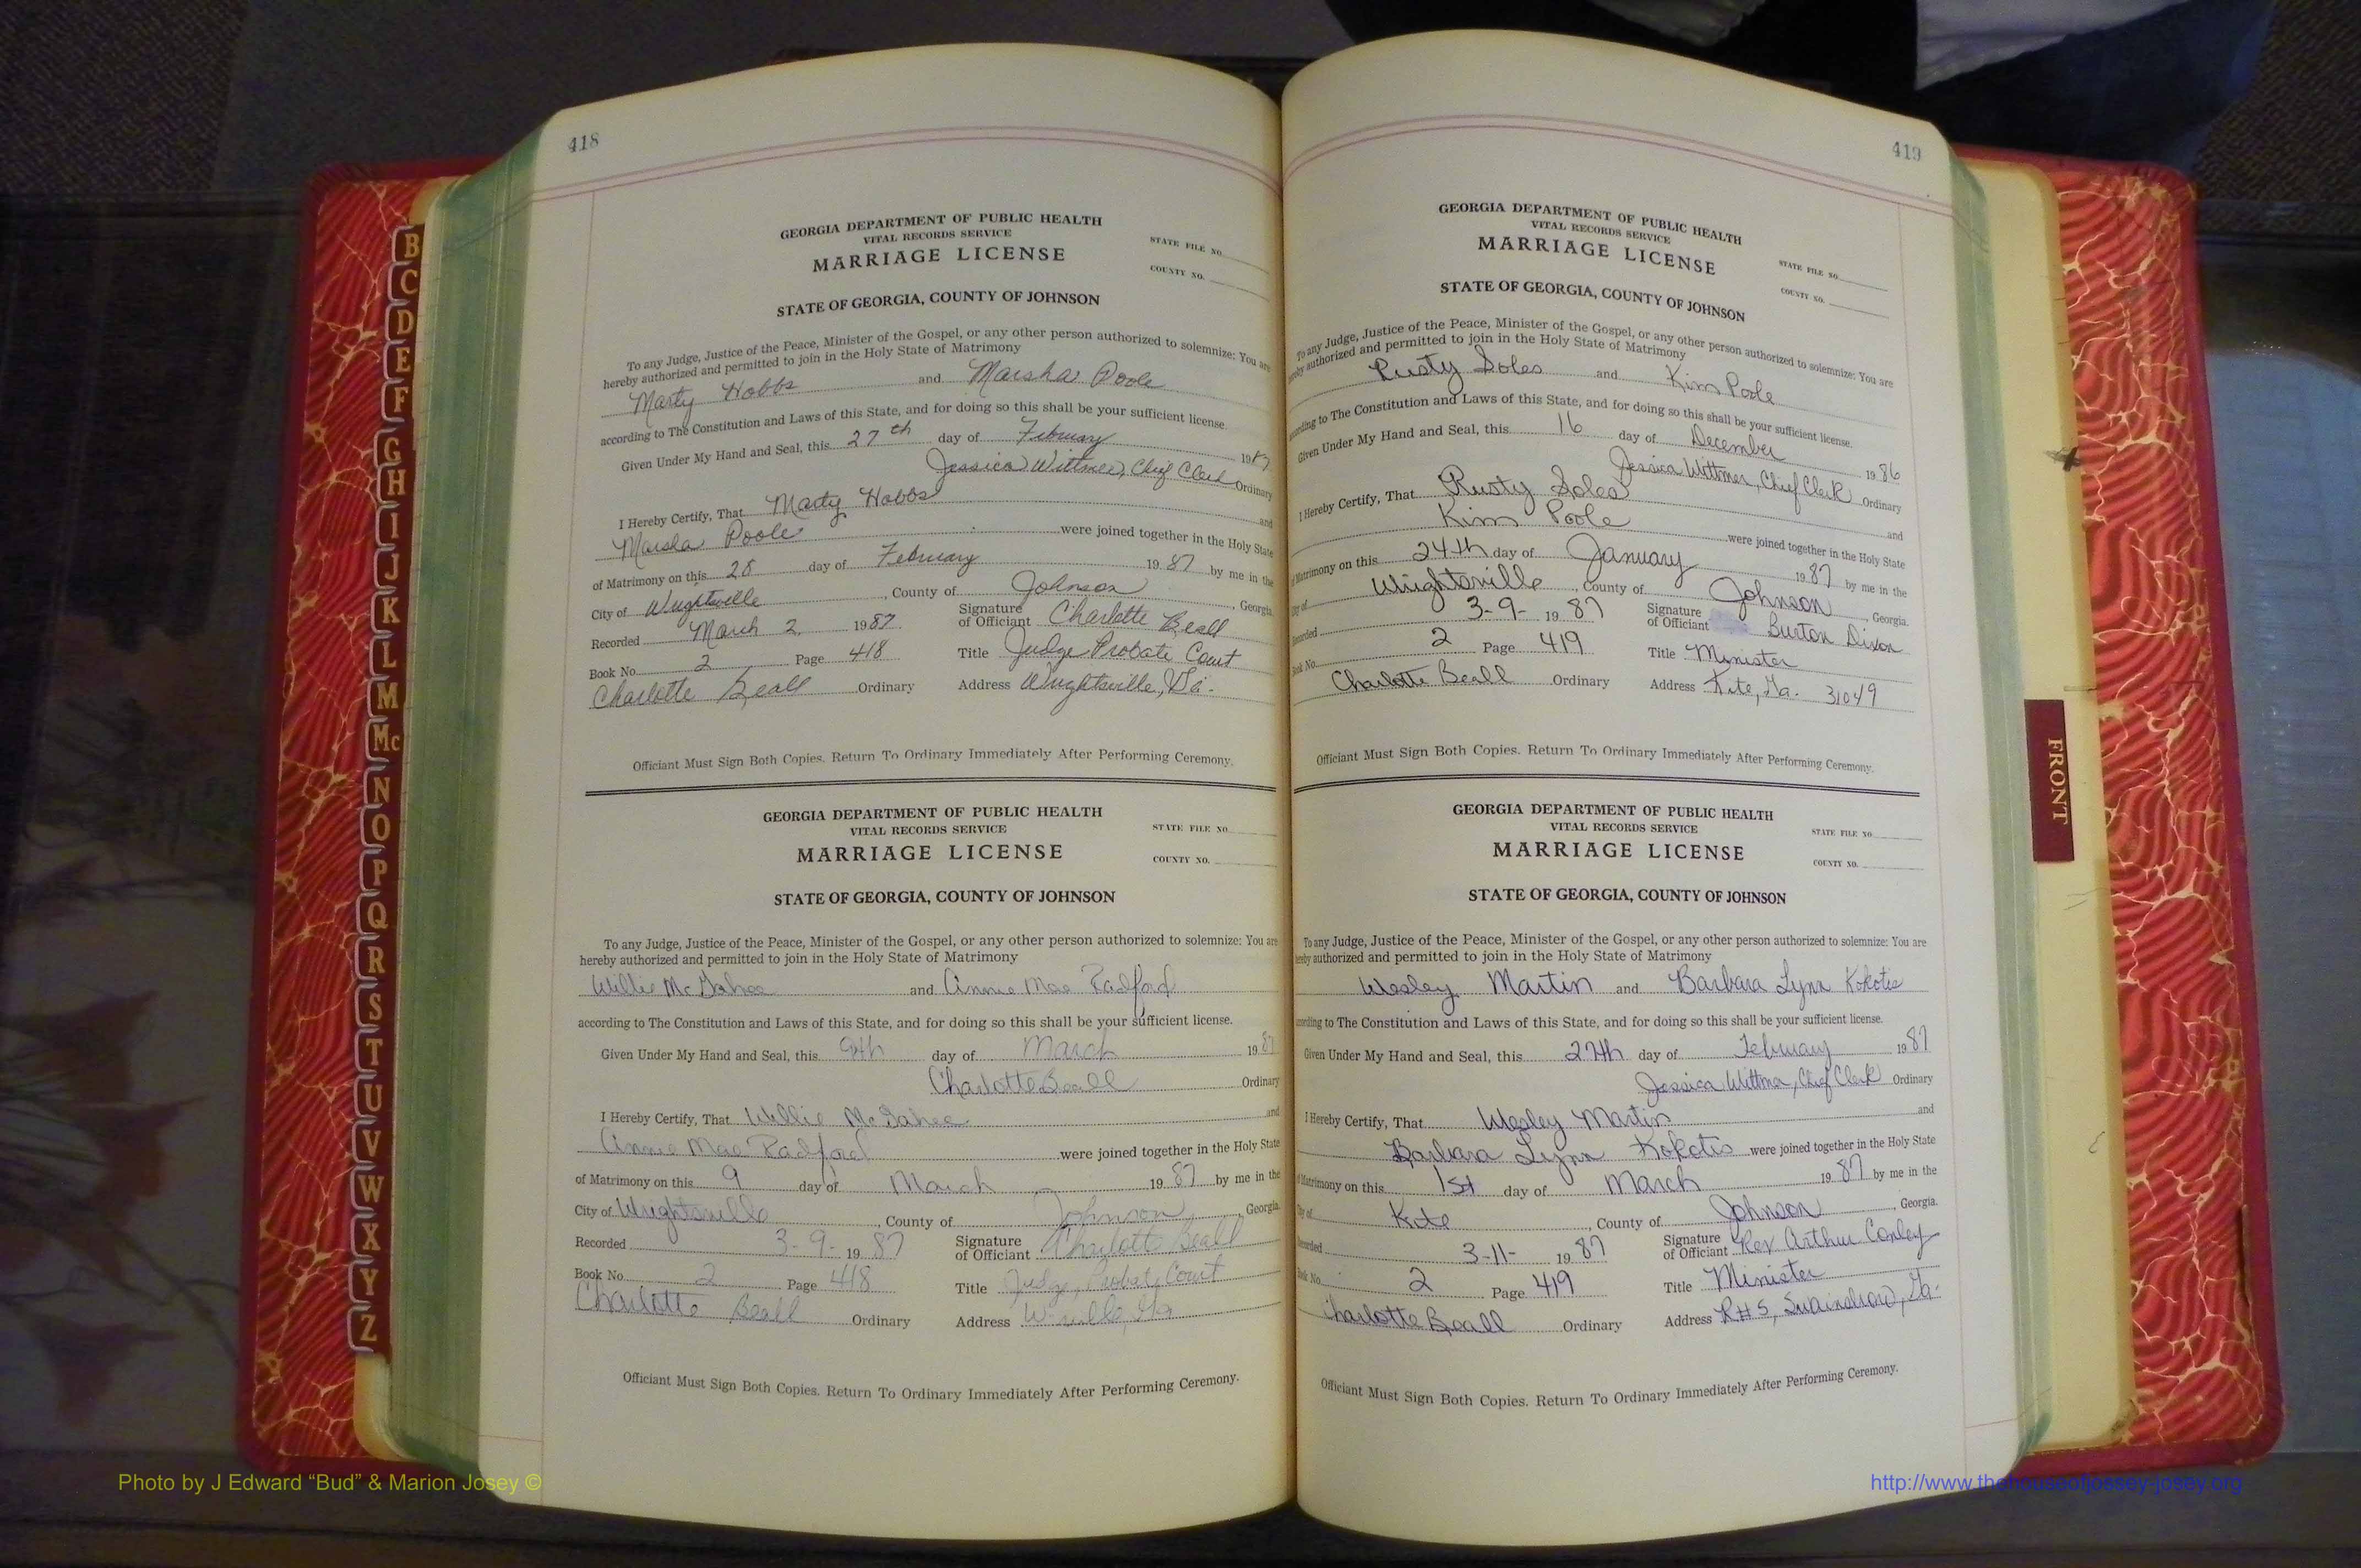 418
GEORGIA DEPARTMENT OF PUBLIC HEALTH
VITAL RECORDS SERVICE
MARRIAGE LICENSE
STATE FILE NO.
COUNTY NO.
STATE OF GEORGIA, COUNTY OF JOHNSON
To any Judge, Justice of the Peace, Minister of the Gospel, or any other person authorized to solemnize: You are
hereby authorized and permitted to join in the Holy State of Matrimony
Marty Hobbs and Marsha Poole
according to The Constitution and Laws of this State, and for doing so this shall be your sufficient license.
Given Under My Hand and Seal, this 27th day of February 1987
Jessica Wittmer, Chief Clerk Ordinary
I Hereby Certify, That Marty Hobbs and
Marsha Poole were joined together in the Holy State
of Matrimony on this 28 day of February 1987 by me in the
City of Wrightsville, County of Johnson, Georgia.
Recorded March 2, 1987 Signature of Officiant Charlotte Beall
Book No. 2 Page 418 Title Judge Probate Court
Charlotte Beall Ordinary Address Wrightsville, Ga.
Officiant Must Sign Both Copies. Return To Ordinary Immediately After Performing Ceremony.
GEORGIA DEPARTMENT OF PUBLIC HEALTH
VITAL RECORDS SERVICE
MARRIAGE LICENSE
STATE FILE NO.
COUNTY NO.
STATE OF GEORGIA, COUNTY OF JOHNSON
To any Judge, Justice of the Peace, Minister of the Gospel, or any other person authorized to solemnize: You are
hereby authorized and permitted to join in the Holy State of Matrimony
Willie McGahee and Annie Mae Radford
according to The Constitution and Laws of this State, and for doing so this shall be your sufficient license.
Given Under My Hand and Seal, this 9th day of March 1987
Charlotte Beall Ordinary
I Hereby Certify, That Willie McGahee and
Annie Mae Radford were joined together in the Holy State
of Matrimony on this 9 day of March 1987 by me in the
City of Wrightsville, County of Johnson, Georgia.
Recorded 3-9- 1987 Signature of Officiant Charlotte Beall
Book No. 2 Page 418 Title Judge, Probate Court
Charlotte Beall Ordinary Address W-ville, Ga
Officiant Must Sign Both Copies. Return To Ordinary Immediately After Performing Ceremony.
419
GEORGIA DEPARTMENT OF PUBLIC HEALTH
VITAL RECORDS SERVICE
MARRIAGE LICENSE
STATE FILE NO.
COUNTY NO.
STATE OF GEORGIA, COUNTY OF JOHNSON
To any Judge, Justice of the Peace, Minister of the Gospel, or any other person authorized to solemnize: You are
hereby authorized and permitted to join in the Holy State of Matrimony
Rusty Soles and Kim Poole
according to The Constitution and Laws of this State, and for doing so this shall be your sufficient license.
Given Under My Hand and Seal, this 16 day of December 1986
Jessica Wittmer, Chief Clerk Ordinary
I Hereby Certify, That Rusty Soles and
Kim Poole were joined together in the Holy State
of Matrimony on this 24th day of January 1987 by me in the
City of Wrightsville, County of Johnson, Georgia.
Recorded 3-9- 1987 Signature of Officiant Burton Dixon
Book No. 2 Page 419 Title Minister
Charlotte Beall Ordinary Address Kite, Ga. 31049
Officiant Must Sign Both Copies. Return To Ordinary Immediately After Performing Ceremony.
GEORGIA DEPARTMENT OF PUBLIC HEALTH
VITAL RECORDS SERVICE
MARRIAGE LICENSE
STATE FILE NO.
COUNTY NO.
STATE OF GEORGIA, COUNTY OF JOHNSON
To any Judge, Justice of the Peace, Minister of the Gospel, or any other person authorized to solemnize: You are
hereby authorized and permitted to join in the Holy State of Matrimony
Wesley Martin and Barbara Lynn Kokotis
according to The Constitution and Laws of this State, and for doing so this shall be your sufficient license.
Given Under My Hand and Seal, this day of February 1987
Jessica Wittmer, Chief Clerk Ordinary
I Hereby Certify, That Wesley Martin and
Barbara Lynn Kokotis were joined together in the Holy State
of Matrimony on this 1st day of March 1987 by me in the
City of Kite, County of Johnson, Georgia.
Recorded 3-11- 1987 Signature of Officiant Rev Arthur Conley
Book No. 2 Page 419 Title Minister
Charlotte Beall Ordinary Address Ga.
Officiant Must Sign Both Copies. Return To Ordinary Immediately After Performing Ceremony.
B
C
D
E
F
G
H
I
J
K
L
M
Mc
N
O
P
Q
R
S
T
U
V
W
X
Y
Z
FRONT
Photo by J Edward “Bud” & Marion Josey ©
http://www.thehouseofjossey-josey.org